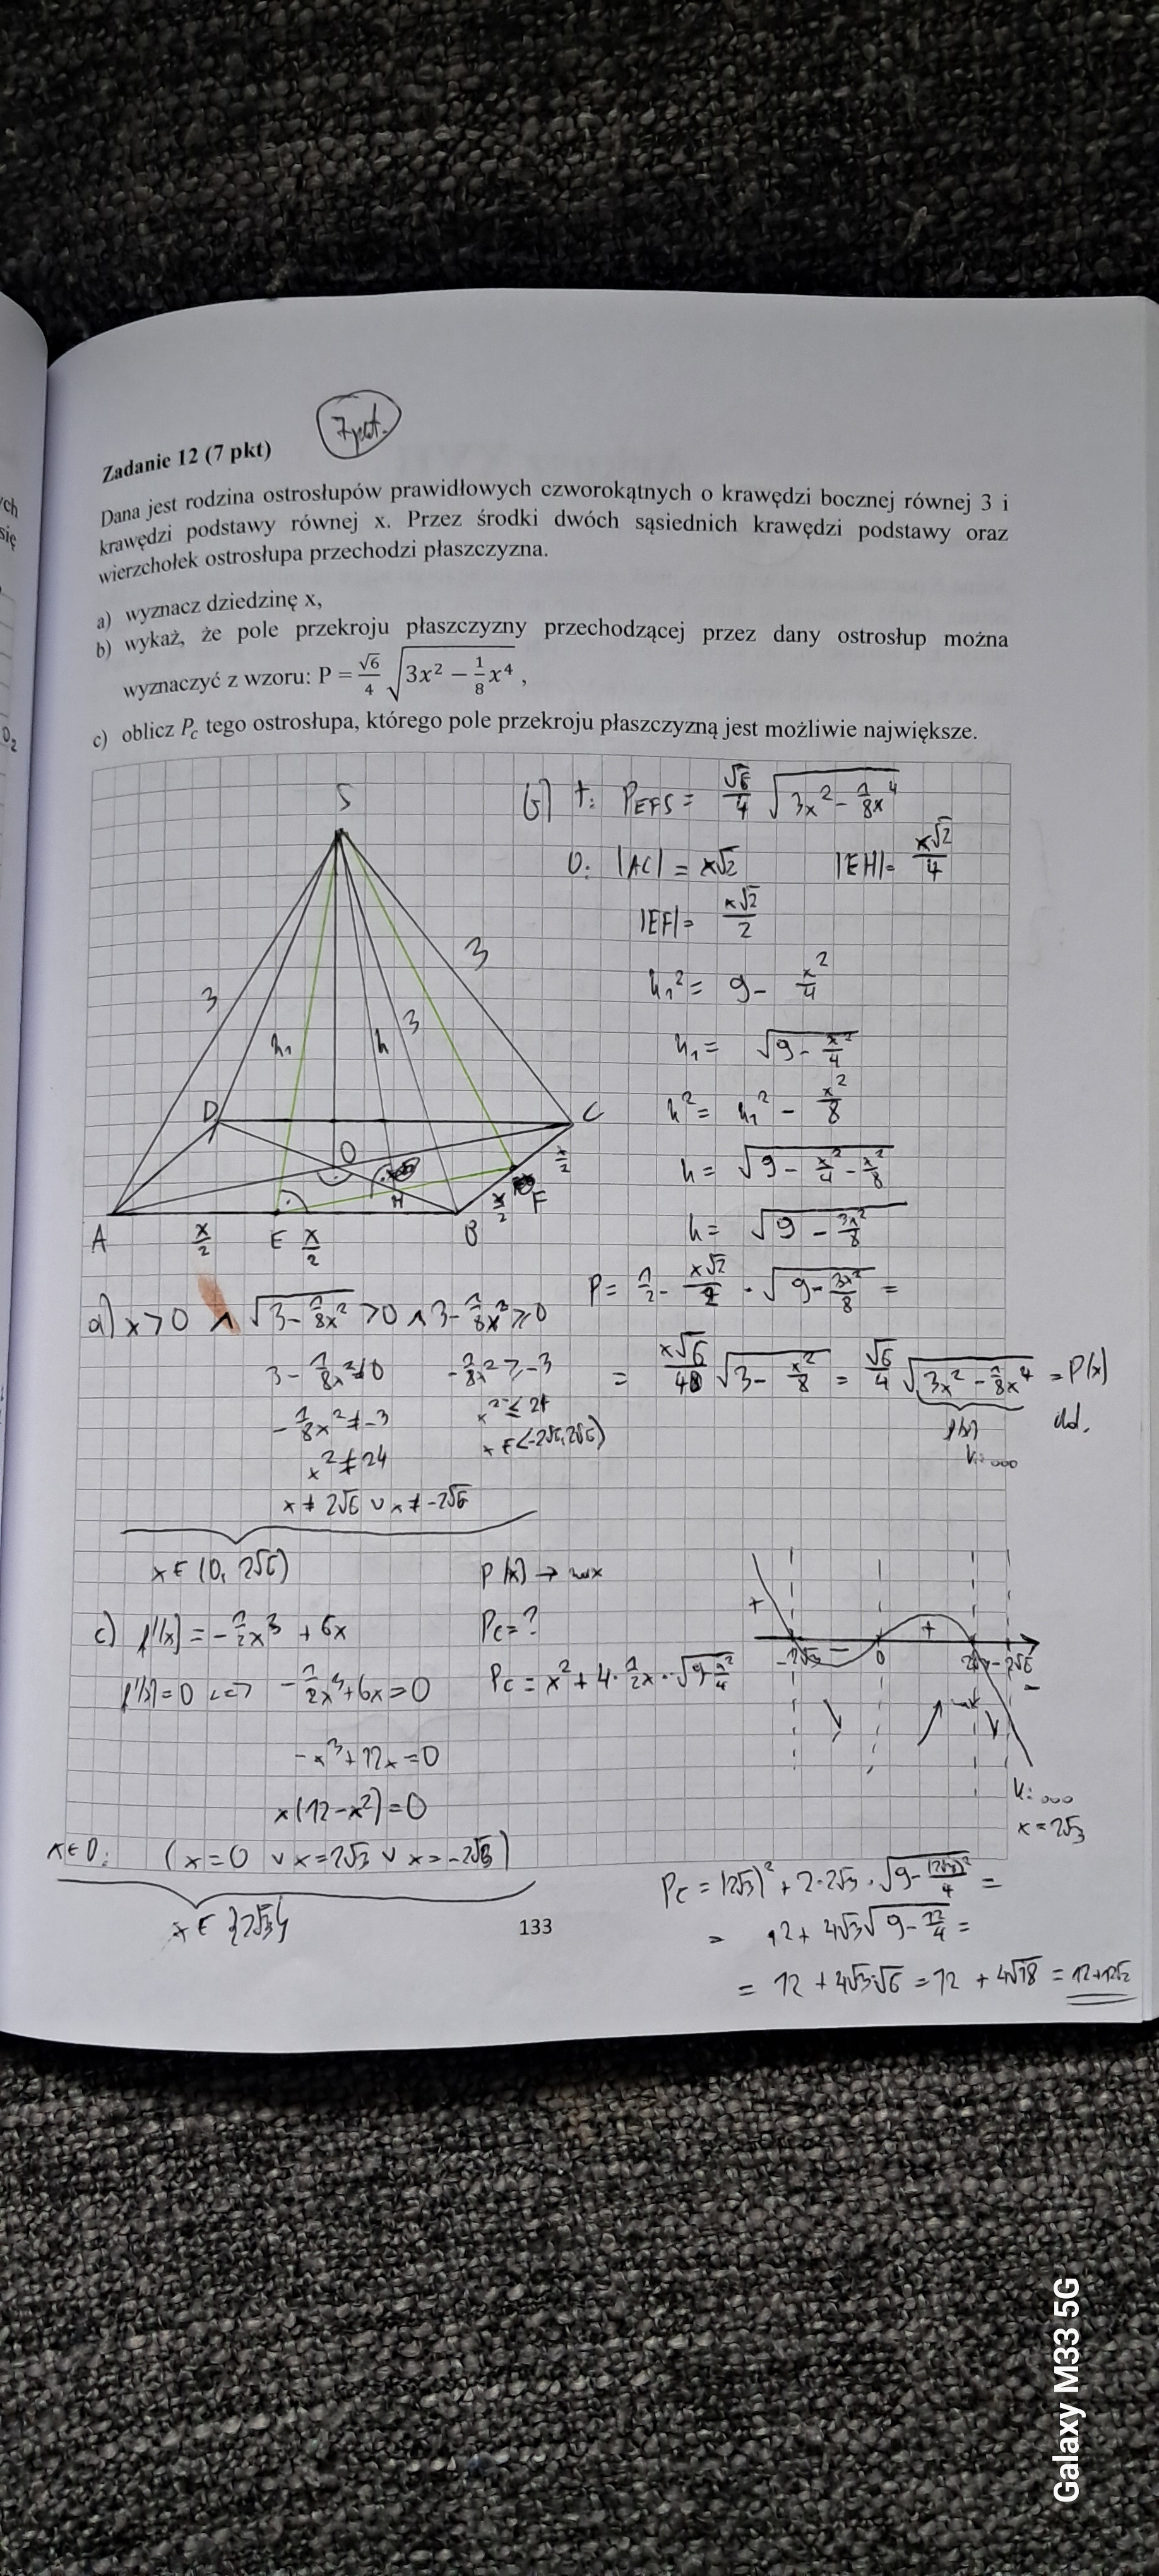 7 pkt.
Zadanie 12 (7 pkt)
Dana jest rodzina ostrosłupów prawidłowych czworokątnych o krawędzi bocznej równej 3 i
krawędzi podstawy równej x. Przez środki dwóch sąsiednich krawędzi podstawy oraz
wierzchołek ostrosłupa przechodzi płaszczyzna.
a) wyznacz dziedzinę x,
b) wykaż, że pole przekroju płaszczyzny przechodzącej przez dany ostrosłup można
wyznaczyć z wzoru: P = √6/4 √(3x² − 1/8 x⁴) ,
c) oblicz P_c tego ostrosłupa, którego pole przekroju płaszczyzną jest możliwie największe.
S
3
3
3
h₁
h
D
C
O
H
F
A
x/2
E
x/2
B
x/2
x/2
b) T: P_EFS = √6/4 √(3x² − 1/8 x⁴)
D: |AC| = x√2 |EH| = x√2/4
|EF| = x√2/2
h₁² = 9 − x²/4
h₁ = √(9 − x²/4)
h² = h₁² − x²/8
h = √(9 − x²/4 − x²/8)
h = √(9 − 3x²/8)
P = 1/2 · x√2/2 · √(9 − 3x²/8) =
= x√6/4 √(3 − x²/8) = √6/4 √(3x² − 1/8 x⁴) = P(x)
f(x)
a) x > 0 ∧ √(3 − 1/8 x²) > 0 ∧ 3 − 1/8 x² ≥ 0
3 − 1/8 x² ≠ 0 − 1/8 x² ≥ −3
− 1/8 x² ≠ −3 x² ≤ 24
x² ≠ 24 x ∈ <−2√6, 2√6>
x ≠ 2√6 ∨ x ≠ −2√6
x ∈ (0, 2√6)
P(x) → max
c) f'(x) = − 1/2 x³ + 6x
P_c = ?
f'(x) = 0 <=> − 1/2 x³ + 6x = 0
P_c = x² + 4 · 1/2 x · √(9 − x²/4)
−x³ + 12x = 0
x(12 − x²) = 0
x ∈ D: (x = 0 ∨ x = 2√3 ∨ x = −2√3)
x ∈ {2√3}
+ − + −
−2√3 0 2√3 2√6
max
x = 2√3
P_c = (2√3)² + 2 · 2√3 · √(9 − (2√3)²/4) =
= 12 + 4√3 √(9 − 12/4) =
= 12 + 4√3 · √6 = 12 + 4√18 = 12 + 12√2
133
Galaxy M33 5G